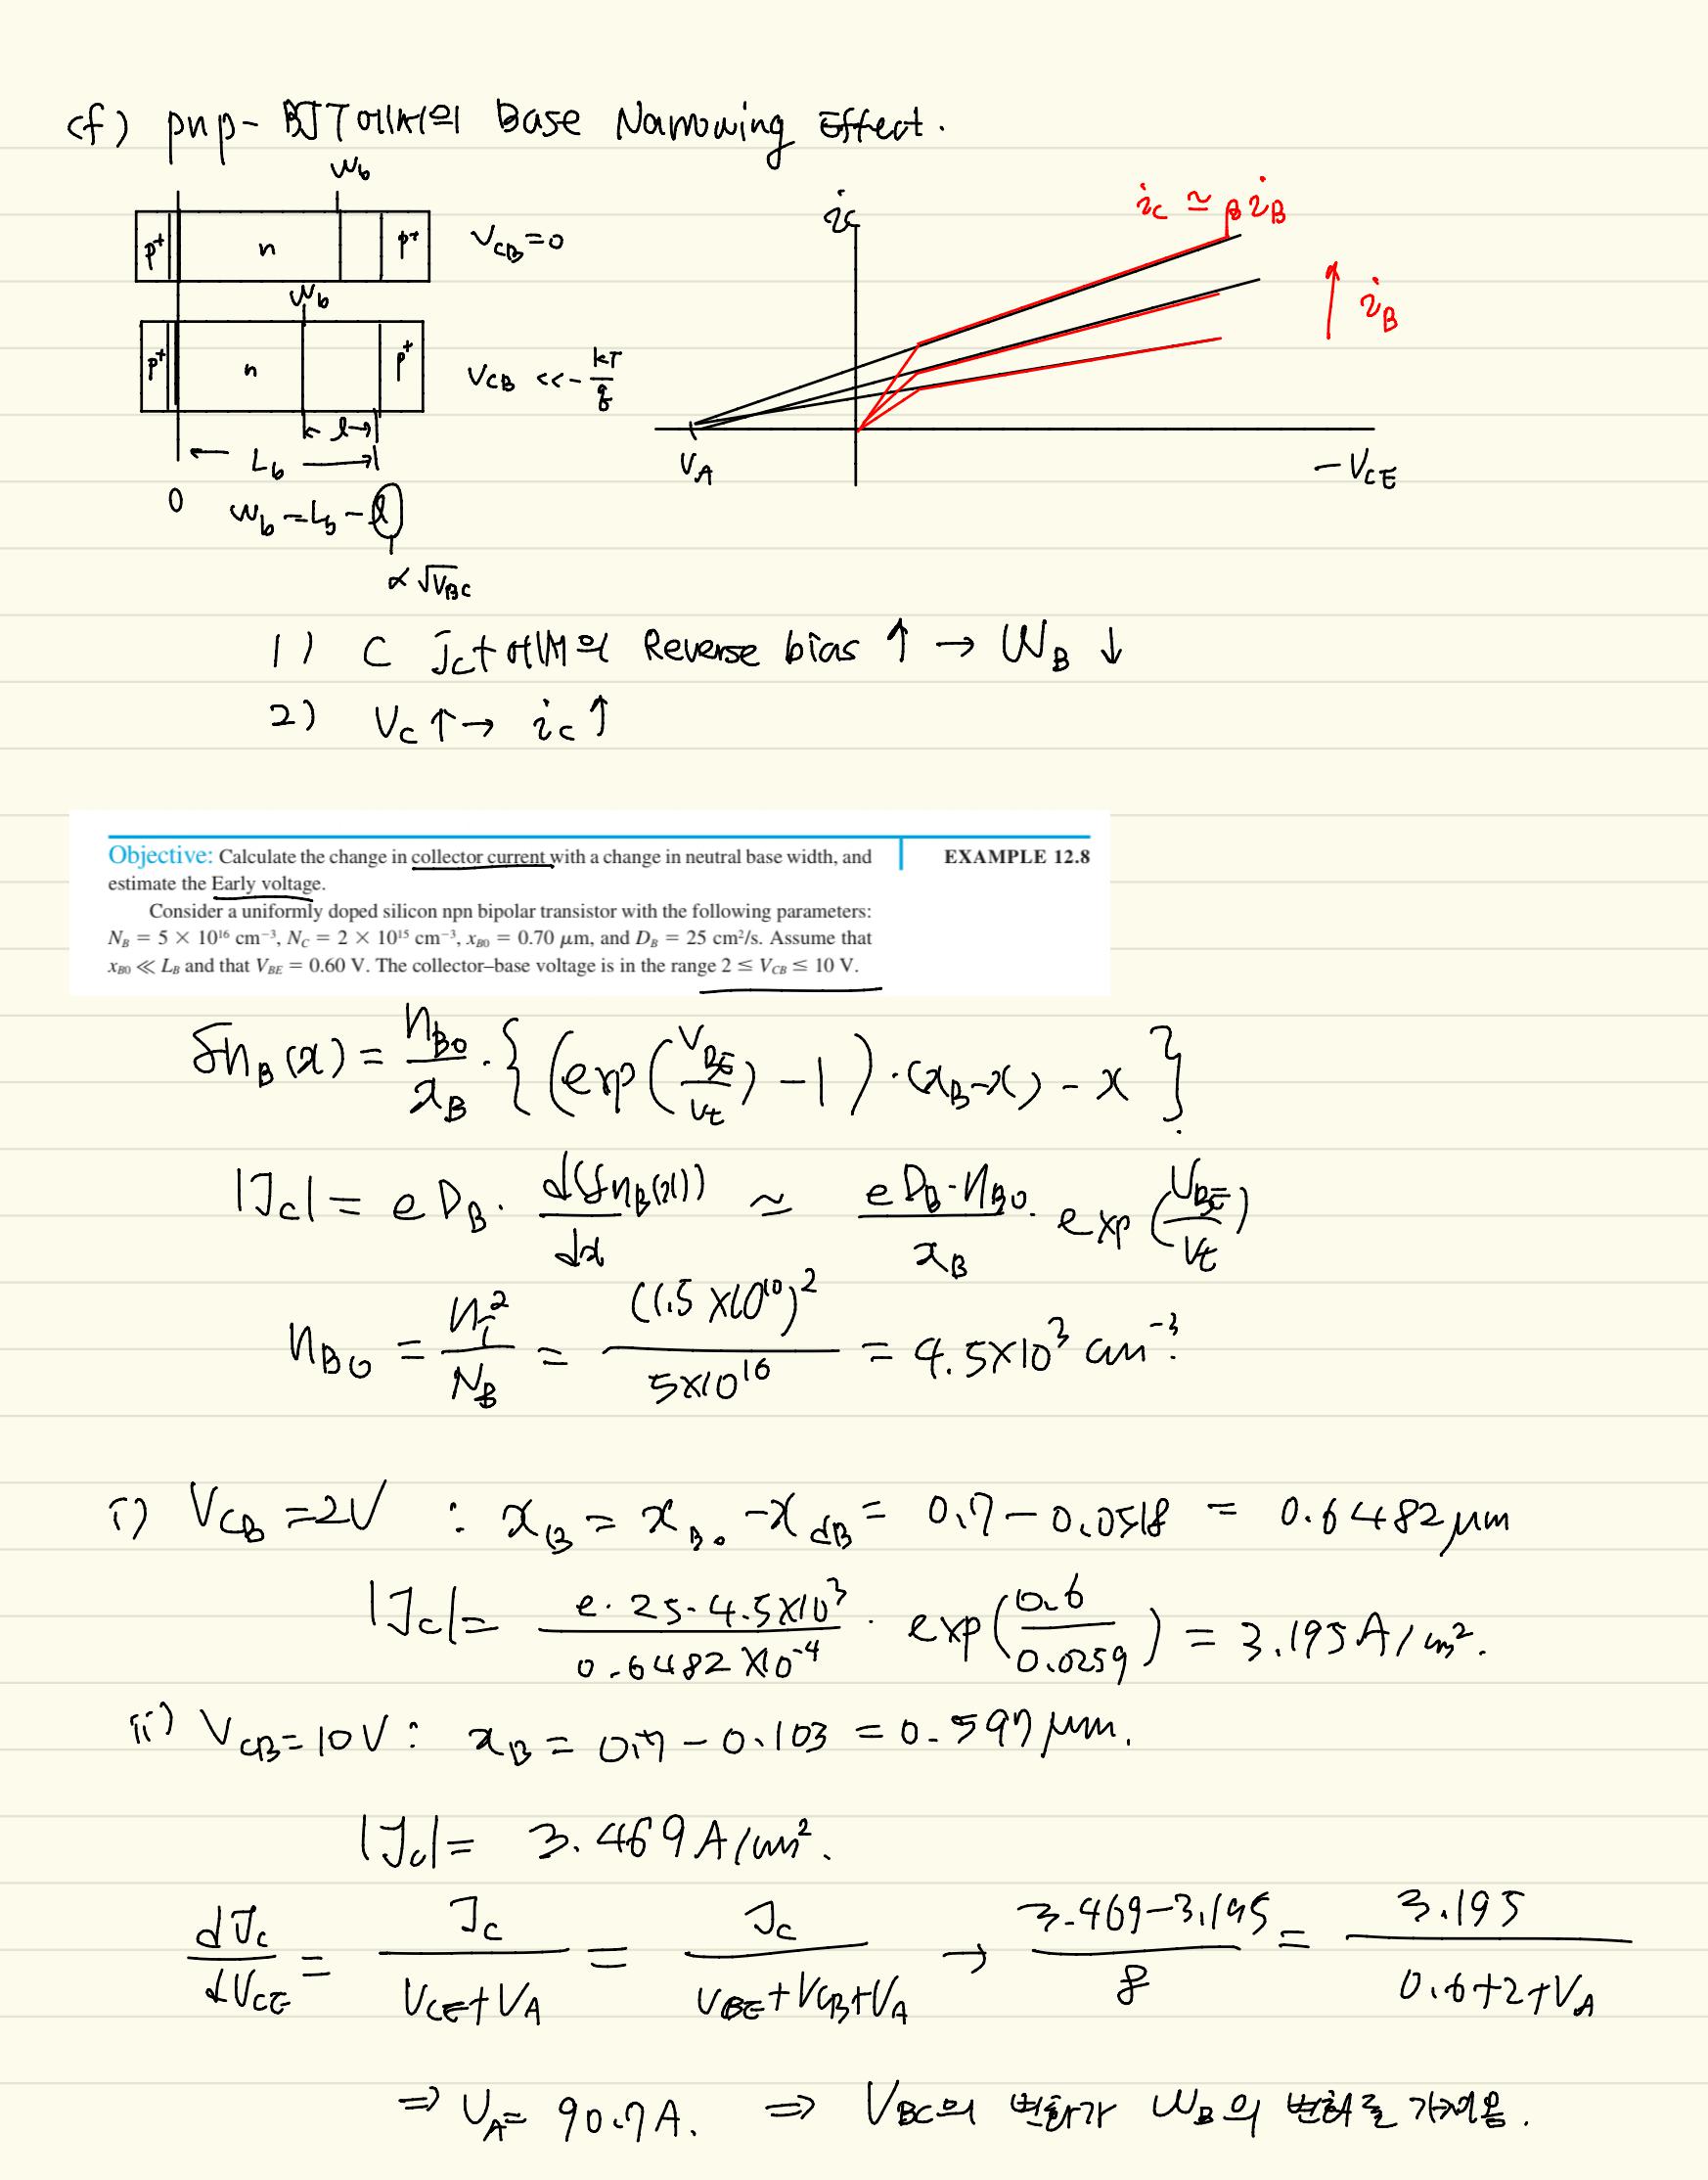 cf) pnp- BJT에서의 Base Narrowing Effect.
W_b
p+ n p+ V_CB=0
W_b
p+ n p+ V_CB << - kT/q
← l →
← L_b →
0 W_b = L_b - l
∝ √V_BC
i_C
i_C ≃ β i_B
↑ i_B
V_A
-V_CE
1) C Jct에서의 Reverse bias ↑ → W_B ↓
2) V_C ↑ → i_C ↑
Objective: Calculate the change in collector current with a change in neutral base width, and EXAMPLE 12.8
estimate the Early voltage.
Consider a uniformly doped silicon npn bipolar transistor with the following parameters:
N_B = 5 × 10^16 cm^-3, N_C = 2 × 10^15 cm^-3, x_B0 = 0.70 μm, and D_B = 25 cm²/s. Assume that
x_B0 ≪ L_B and that V_BE = 0.60 V. The collector–base voltage is in the range 2 ≤ V_CB ≤ 10 V.
δn_B(x) = n_B0/x_B · { (exp(V_BE/V_t) - 1) · (x_B - x) - x }.
|J_C| = e D_B · d(δn_B(x))/dx ≃ e D_B · n_B0/x_B · exp(V_BE/V_t)
n_B0 = n_i²/N_B = (1.5 × 10^10)²/5×10^16 = 4.5×10³ cm^-3.
i) V_CB = 2V : x_B = x_B0 - x_dB = 0.7 - 0.0518 = 0.6482 μm
|J_C| = e · 25 · 4.5×10³/0.6482×10^-4 · exp(0.6/0.0259) = 3.195 A/cm².
ii) V_CB = 10V : x_B = 0.7 - 0.103 = 0.597 μm.
|J_C| = 3.469 A/cm².
dJ_C/dV_CE = J_C/V_CE+V_A = J_C/V_BE+V_CB+V_A → 3.469-3.195/8 = 3.195/0.6+2+V_A
⇒ V_A = 90.7A. ⇒ V_BC의 변화가 W_B의 변화를 가져옴.